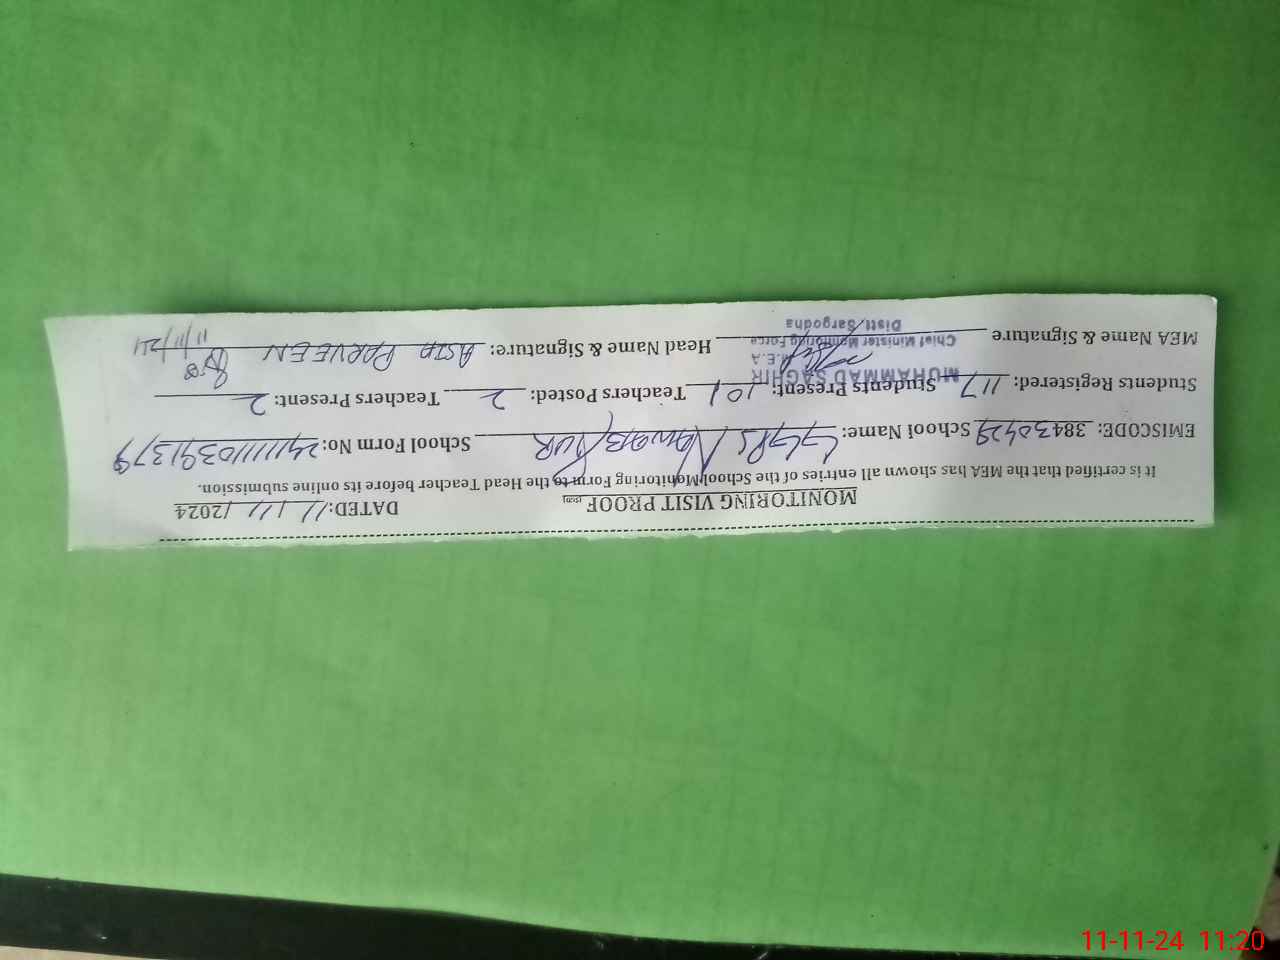 MONITORING VISIT PROOF DATED: 11/11/2024
It is certified that the MEA has shown all entries of the School Monitoring Form to the Head Teacher before its online submission.
EMISCODE: 38430429 School Name: GGPS Nawab Pur School Form No: 
Students Registered: 117 Students Present: 101 Teachers Posted: 2 Teachers Present: 2
MEA Name & Signature Head Name & Signature: ASIA PARVEEN
11/11/24
MUHAMMAD SAGHIR
M.E.A
Chief Minister Monitoring Force
Distt. Sargodha
11-11-24 11:20